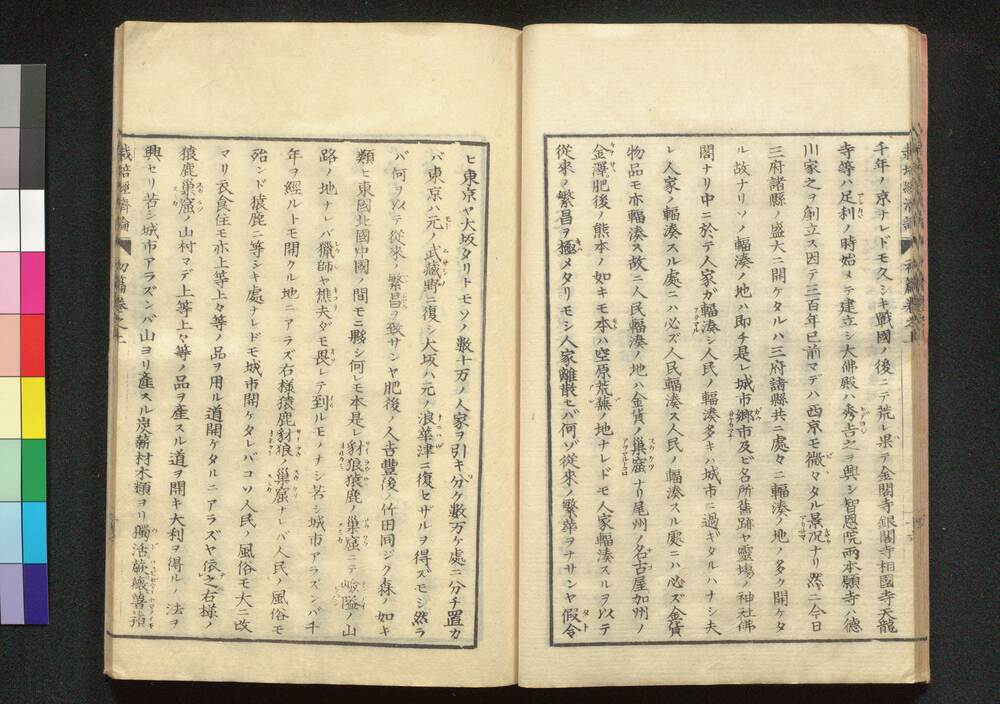 千年ノ京ナレドモ久シキ戰國ノ後ニテ荒レ果テ金閣寺銀閣寺相國寺天龍
寺等ハ足利ノ時始メテ建立シ大佛殿ハ秀吉之ヲ興シ智恩院兩本願寺ハ德
川家之ヲ創立ス因テ三百年已前マデハ西京モ微々タル景況ナリ然ニ今日
三府諸縣ノ盛大ニ開ケタルハ三府諸縣共ニ處々ニ輻湊ノ地ノ多ク開ケタ
ル故ナリソノ輻湊ノ地ハ即チ是レ城市鄉市及ビ名所舊跡ヤ靈場ノ神社佛
閣ナリ中ニ於テ人家ガ輻湊シ人民ノ輻湊多キハ城市ニ過ギタルハナシ夫
レ人家ノ輻湊スル處ニハ必ズ人民輻湊ス人民ノ輻湊スル處ニハ必ズ金貨
物品モ亦輻湊ス故ニ人民輻湊ノ地ハ金貨ノ巢窟ナリ尾州ノ名古屋加州ノ
金澤肥後ノ熊本ノ如キモ本ハ空原荒蕪ノ地ナレドモ人家輻湊スルヲ以テ
從來ヲ繁昌ヲ極メタリモシ人家離散セバ何ゾ從來ノ繁華ヲナサンヤ假令
ヒ東京ヤ大坂タリトモソノ數十万ノ人家ヲ引キ分ケ數万ケ處ニ分チ置カ
バ東京ハ元ノ武藏野ニ復シ大坂ハ元ノ浪華津ニ復セザルヲ得ズモシ然ラ
バ何ヲ以テ從來ノ繁昌ヲ致サンヤ肥後ノ人吉豐後ノ竹田同ジク森ノ如キ
類ヒ東國北國中國ノ間モニ夥シ何レモ本是レ豺狼猿鹿ノ巢窟ニテ嶮隘ノ山
路ノ地ナレバ獵師ヤ樵夫ダモ畏レテ到ルモノナシ若シ城市アラズンバ千
年ヲ經ルトモ開クル地ニアラズ右樣猿鹿豺狼ノ巢窟ナレバ人民ノ風俗モ
殆ンド猿鹿ニ等シキ處ナレドモ城市開ケタレバコソ人民ノ風俗モ大ニ改
マリ衣食住モ亦上等上々等ノ品ヲ用ル道開ケタルニアラズヤ依之右樣ノ
猿鹿巢窟ノ山村マデ上等上々等ノ品ヲ產スル道ヲ開キ大利ヲ得ルノ法ヲ
興セリ若シ城市アラズンバ山ヨリ產スル炭薪材木類ヨリ獨活蕨
栽培經濟論 初篇卷之上